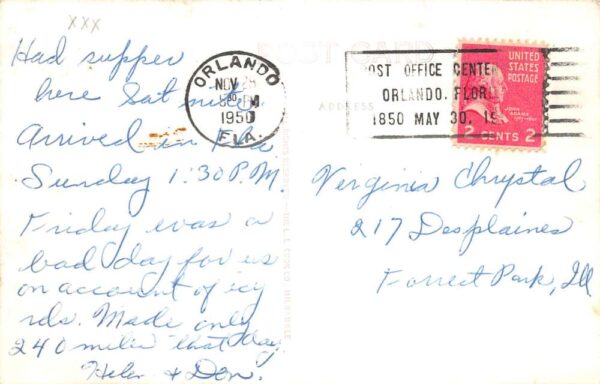 XXX
Had supper
here Sat nite.
Arrived in Fla
Sunday 1:30 P.M.
Friday was a
bad day for us
on account of icy
rds. Made only
240 miles that day.
Helen & Don.
POST CARD
ADDRESS
ORLANDO
NOV
PM
1950
FLA.
POST OFFICE CENTEN
ORLANDO, FLORI
1850 MAY 30, 19
UNITED
STATES
POSTAGE
JOHN
ADAMS
2 CENTS 2
Virginia Chrystal
217 Desplaines
Forrest Park, Ill